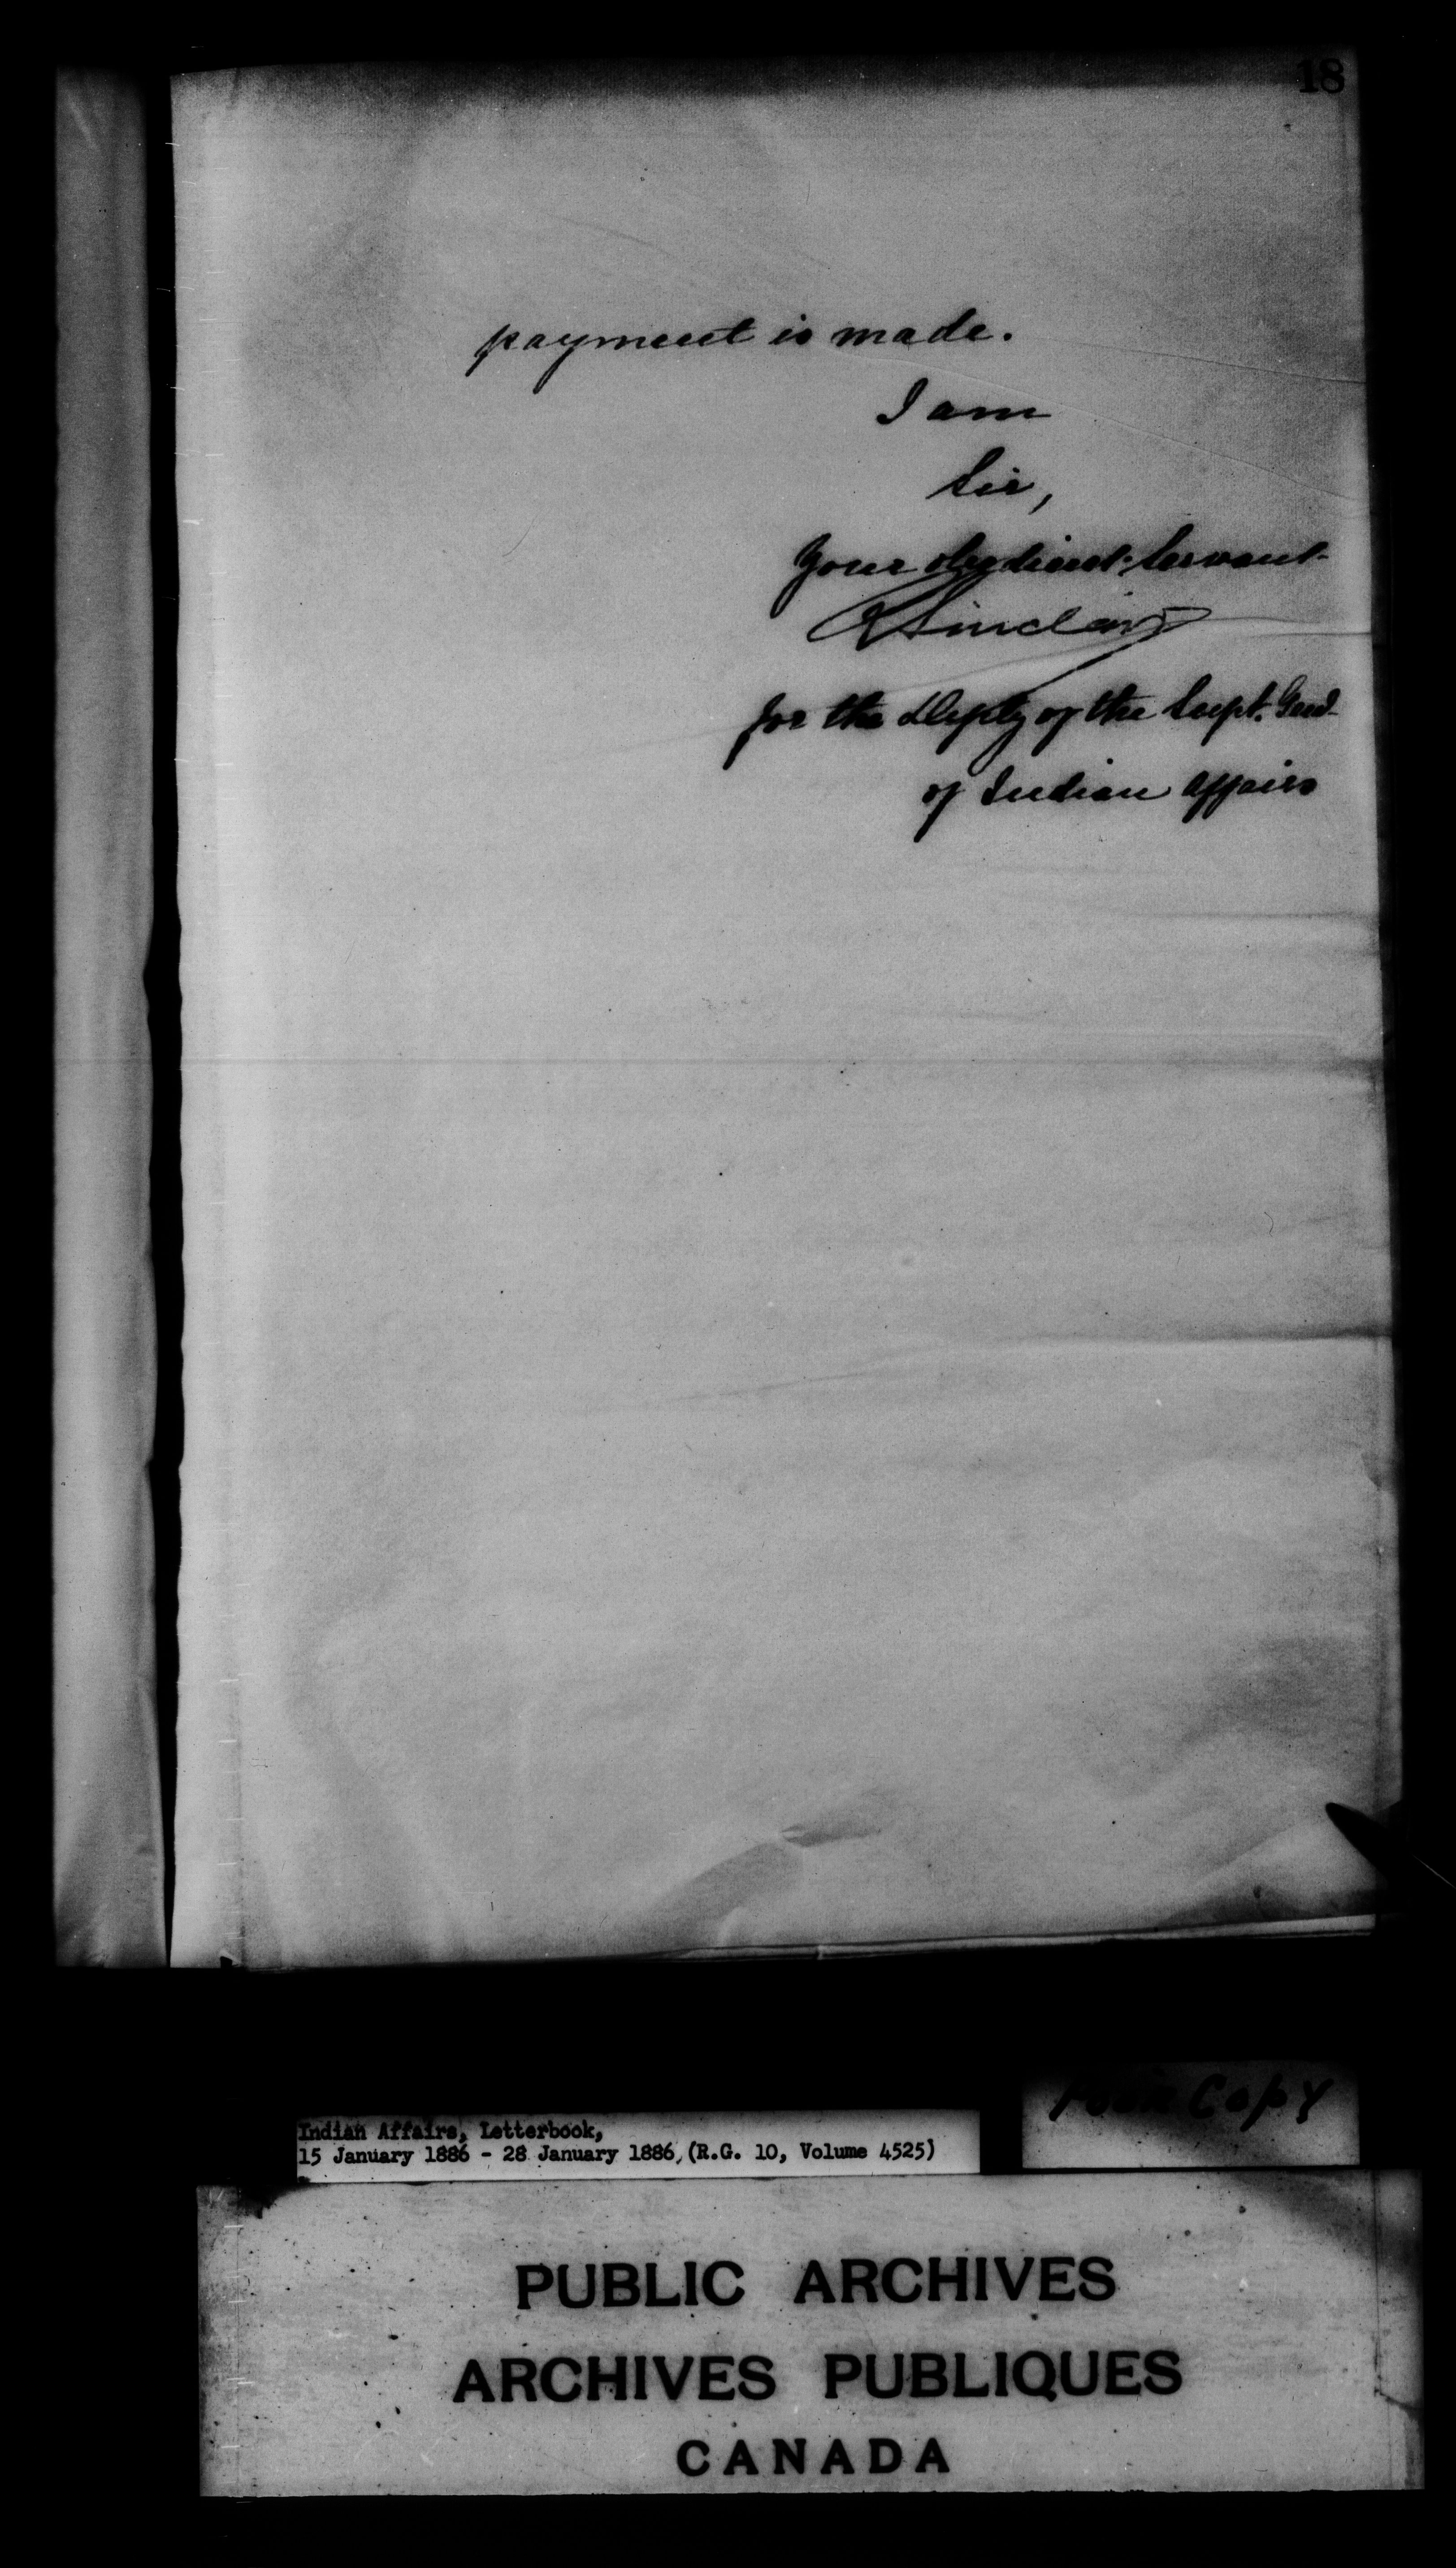 18
payment is made.
I am
Sir,
Your obedient Servant
R Sinclair
for the Depty of the Supt. Genl
of Indian Affairs
Poor Copy
Indian Affairs, Letterbook,
15 January 1886 - 28 January 1886, (R.G. 10, Volume 4525)
PUBLIC ARCHIVES
ARCHIVES PUBLIQUES
CANADA